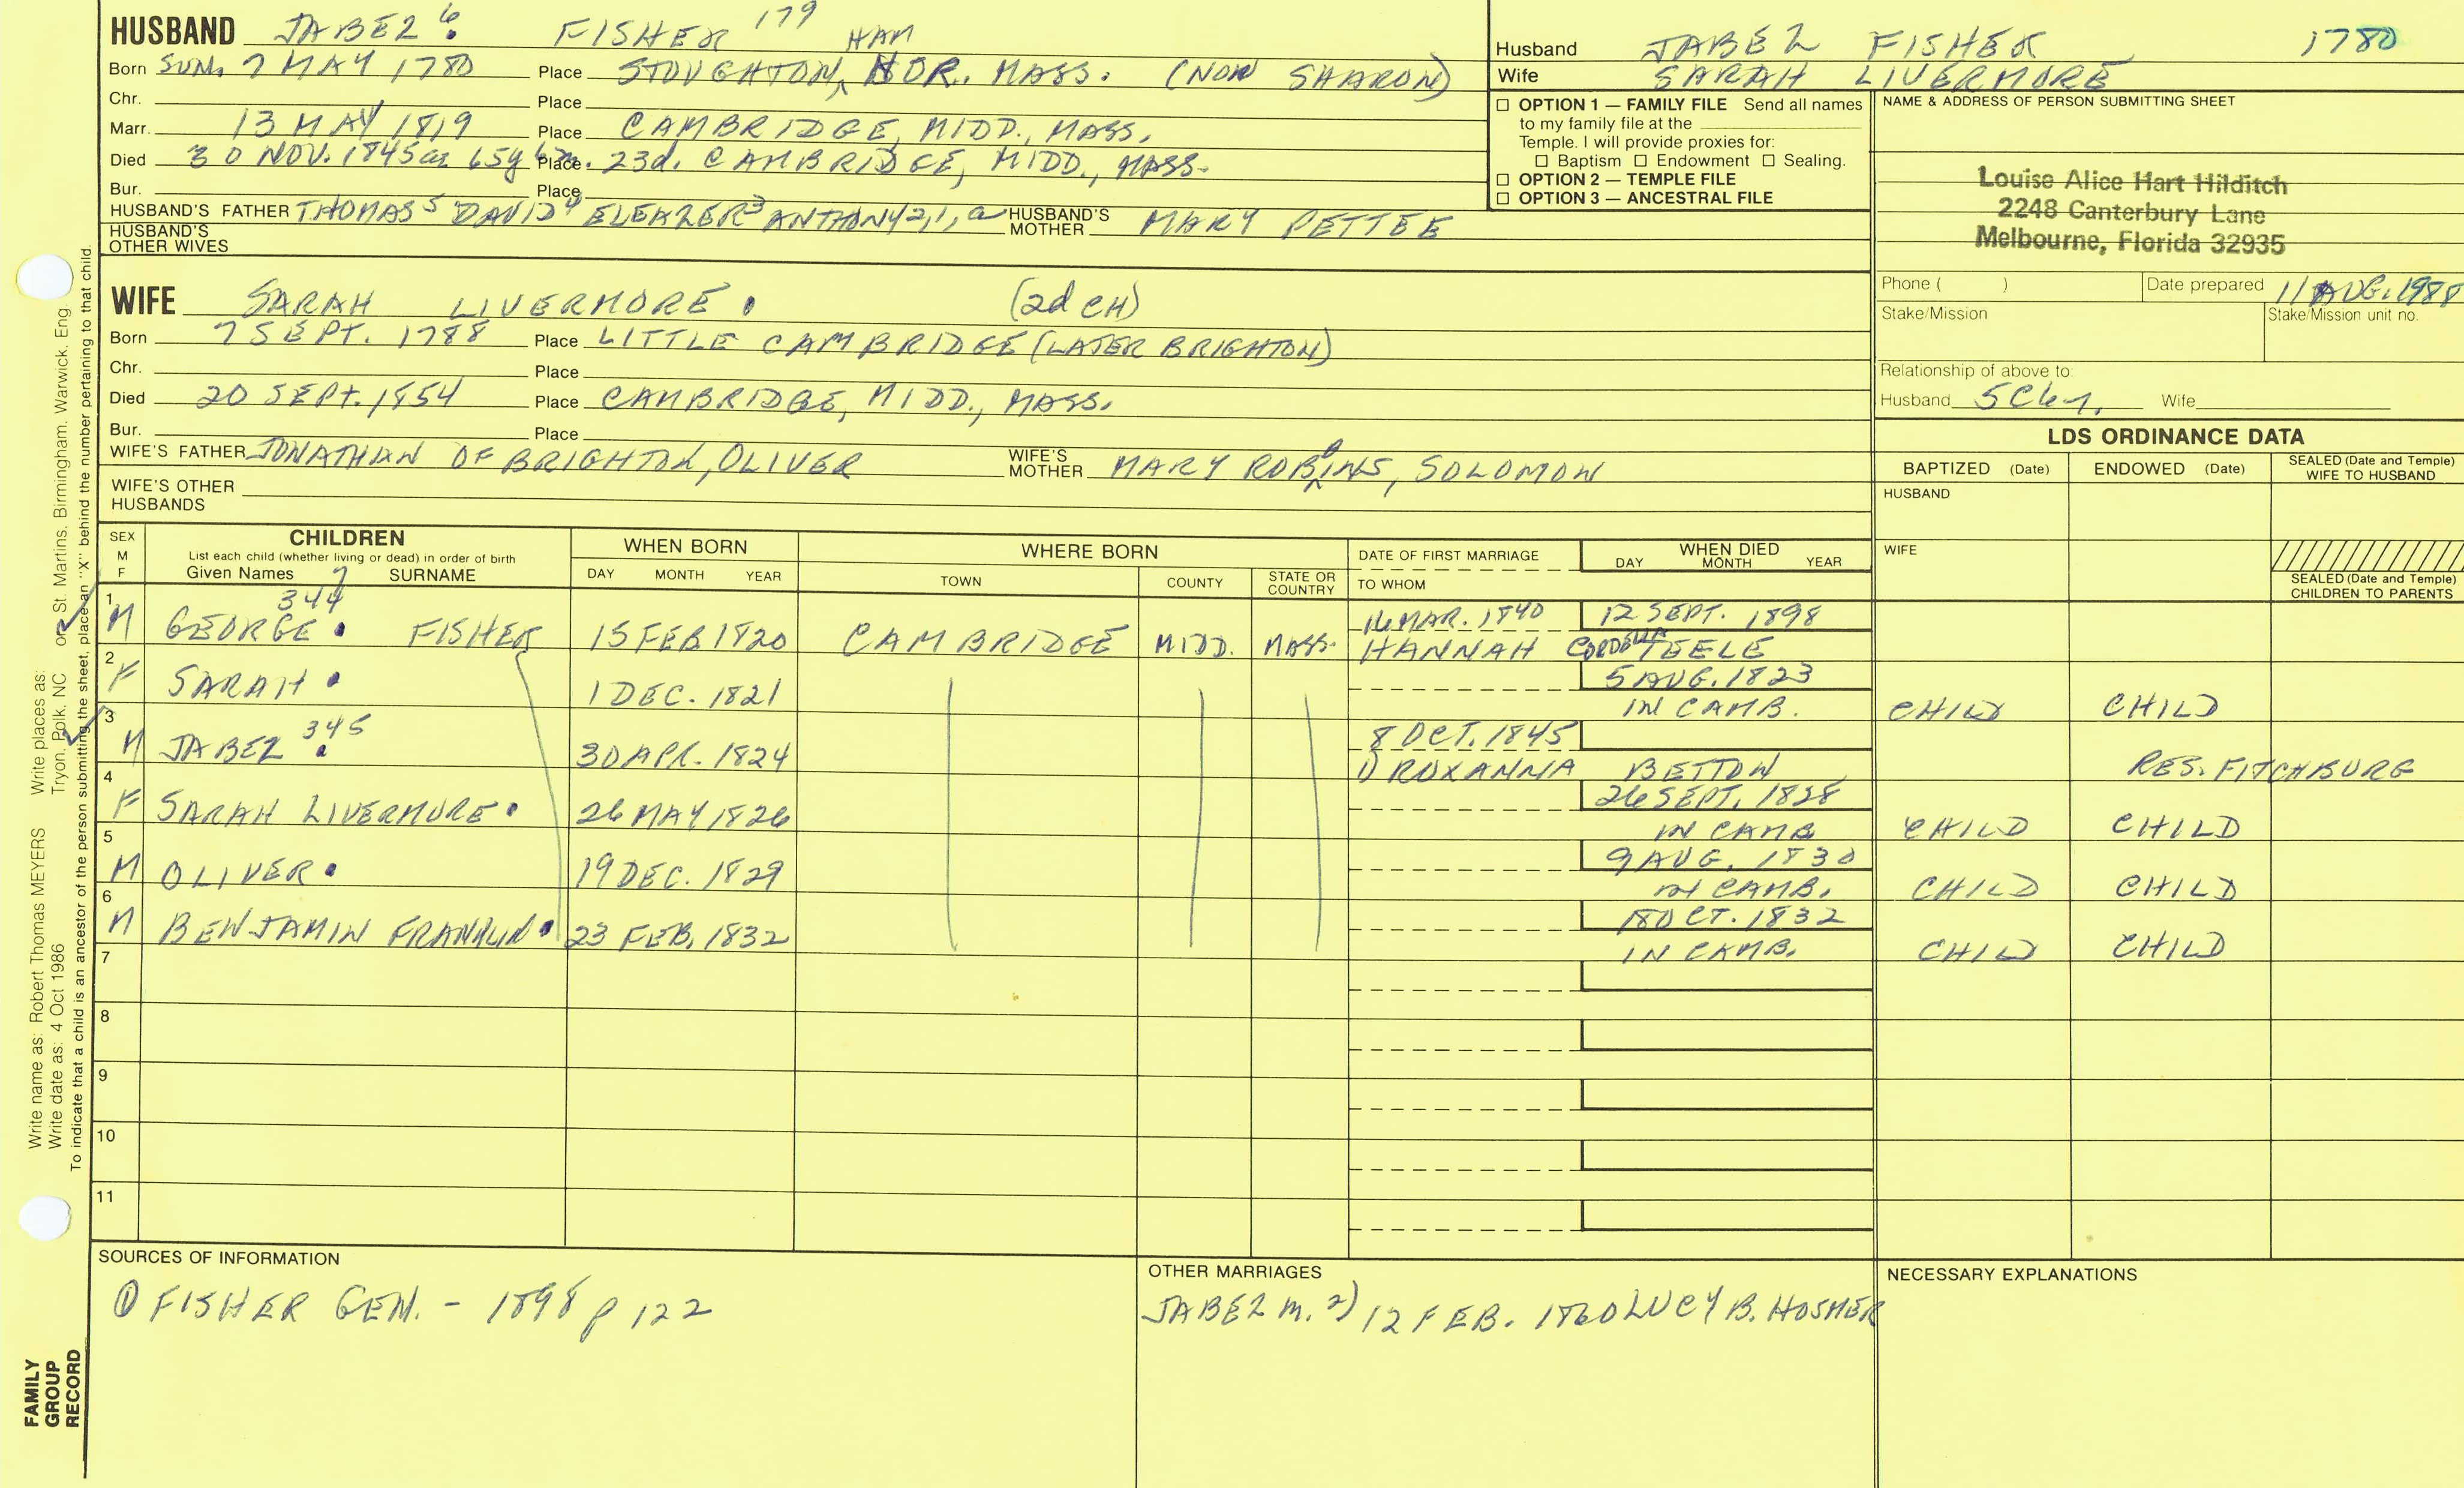 HUSBAND JABEZ 6 FISHER 179
Born SUN. 7 MAY 1780 Place STOUGHTONHAM, NOR. MASS. (NOW SHARON)
Chr. Place
Marr. 13 MAY 1819 Place CAMBRIDGE, MIDD., MASS.
Died 30 NOV. 1845 ae 65y 6m. 23d. Place CAMBRIDGE, MIDD., MASS.
Bur. Place
HUSBAND'S FATHER THOMAS 5 DAVID 4 ELEAZER 3 ANTHONY 2,1,a HUSBAND'S MOTHER MARY PETTEE
HUSBAND'S OTHER WIVES
WIFE SARAH LIVERMORE. (2d CH)
Born 7 SEPT. 1788 Place LITTLE CAMBRIDGE (LATER BRIGHTON)
Chr. Place
Died 20 SEPT. 1854 Place CAMBRIDGE, MIDD., MASS.
Bur. Place
WIFE'S FATHER JONATHAN OF BRIGHTON, OLIVER WIFE'S MOTHER MARY ROBBINS, SOLOMON
WIFE'S OTHER HUSBANDS
Husband JABEZ FISHER 1780
Wife SARAH LIVERMORE
☐ OPTION 1 — FAMILY FILE Send all names
to my family file at the
Temple. I will provide proxies for:
☐ Baptism ☐ Endowment ☐ Sealing.
☐ OPTION 2 — TEMPLE FILE
☐ OPTION 3 — ANCESTRAL FILE
NAME & ADDRESS OF PERSON SUBMITTING SHEET
Louise Alice Hart Hilditch
2248 Canterbury Lane
Melbourne, Florida 32935
Phone ( ) Date prepared 11 AUG. 1988
Stake/Mission Stake/Mission unit no.
Relationship of above to:
Husband 5C6r. Wife
LDS ORDINANCE DATA
BAPTIZED (Date) ENDOWED (Date) SEALED (Date and Temple) WIFE TO HUSBAND
HUSBAND
WIFE
SEALED (Date and Temple) CHILDREN TO PARENTS
SEX M F
CHILDREN
List each child (whether living or dead) in order of birth
Given Names 7 SURNAME
WHEN BORN DAY MONTH YEAR
WHERE BORN TOWN COUNTY STATE OR COUNTRY
DATE OF FIRST MARRIAGE TO WHOM
WHEN DIED DAY MONTH YEAR
1 M GEORGE. 344 FISHER 15 FEB 1820 CAMBRIDGE MIDD. MASS. 16 MAR. 1840 12 SEPT. 1898
HANNAH CORDELIA TEELE
2 F SARAH. 1 DEC. 1821 5 AUG. 1823
IN CAMB. CHILD CHILD
3 M JABEZ 345 30 APR. 1824 8 OCT. 1845
1) ROXANNA BETTON RES. FITCHBURG
4 F SARAH LIVERMORE. 26 MAY 1826 26 SEPT. 1828
IN CAMB CHILD CHILD
5 M OLIVER. 19 DEC. 1829 9 AUG. 1830
IN CAMB. CHILD CHILD
6 M BENJAMIN FRANKLIN. 23 FEB. 1832 18 OCT. 1832
IN CAMB. CHILD CHILD
7
8
9
10
11
SOURCES OF INFORMATION
① FISHER GEN. - 1898 p 122
OTHER MARRIAGES
JABEZ m. 2) 12 FEB. 1860 LUCY B. HOSMER
NECESSARY EXPLANATIONS
Write name as: Robert Thomas MEYERS Write places as:
Write date as: 4 Oct 1986 Tryon, Polk, NC or St. Martins, Birmingham, Warwick, Eng.
To indicate that a child is an ancestor of the person submitting the sheet, place an "X" behind the number pertaining to that child.
FAMILY
GROUP
RECORD